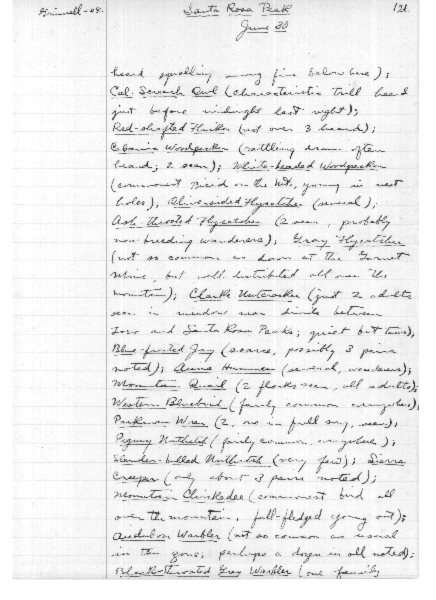 Grinnell-08. Santa Rosa Peak 121.
June 30
heard squalling among pines below here);
Cal. Screech Owl (characteristic trill heard
just before midnight last night);
Red-shafted Flicker (not over 3 heard);
Cabanis Woodpecker (rattling drum often
heard; 2 seen); White-headed Woodpecker
(commonest bird on the Mt., young in nest
holes); Olive-sided Flycatcher (several);
Ash-throated Flycatcher (2 seen, probably
non-breeding wanderers); Gray Flycatcher
(not so common as down at the Garnet
Mine, but well distributed all over the
mountain); Clarke Nutcracker (just 2 adults
seen in meadow near divide between
Toro and Santa Rosa Peaks; quiet but tame);
Blue-fronted Jay (scarce, possibly 3 pairs
noted); Anna Hummer (several, wanderers);
Mountain Quail (2 flocks seen, all adults);
Western Bluebird (fairly common, everywhere);
Parkman Wren (2, one in full song, seen);
Pigmy Nuthatch (fairly common, everywhere);
Slender-billed Nuthatch (very few); Sierra
Creeper (only about 3 pairs noted);
Mountain Chickadee (commonest bird all
over the mountain, full-fledged young out);
Audubon Warbler (not so common as usual
in this zone; perhaps a dozen in all noted);
Black-throated Gray Warbler (one family